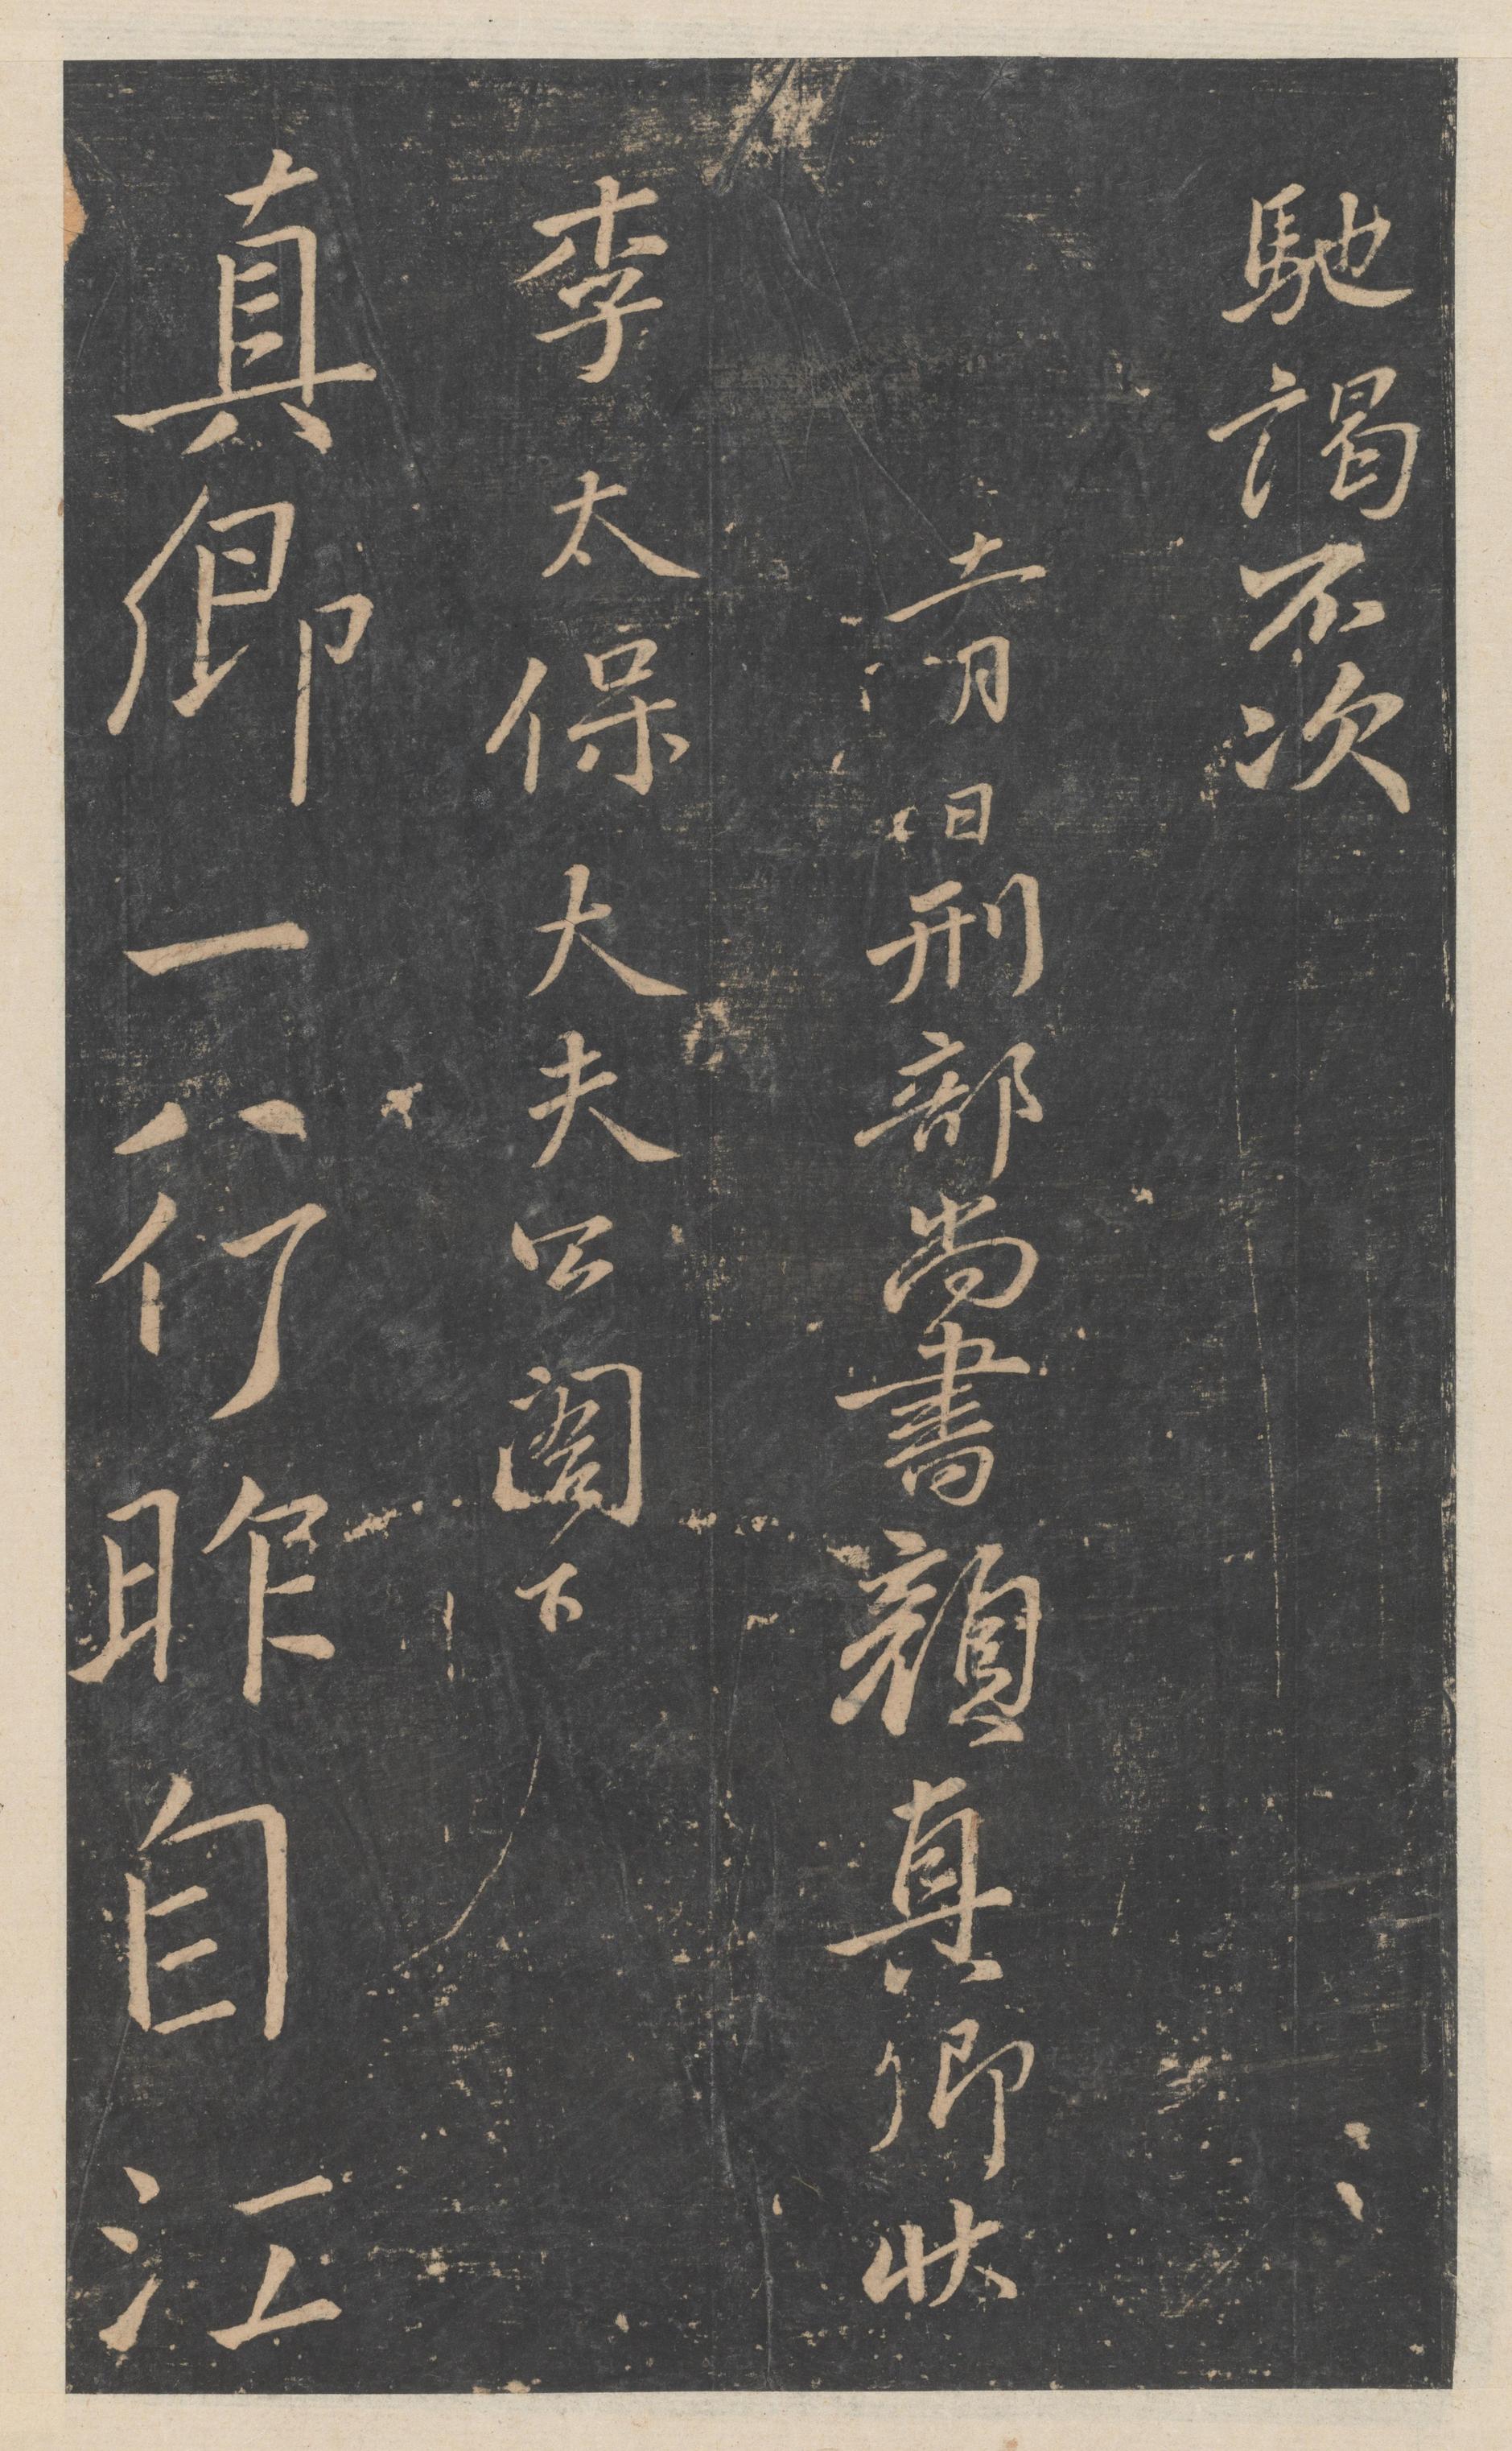 馳謁不次
十一月日刑部尚書顏真卿狀
李太保大夫公閤下
真卿一行昨自江